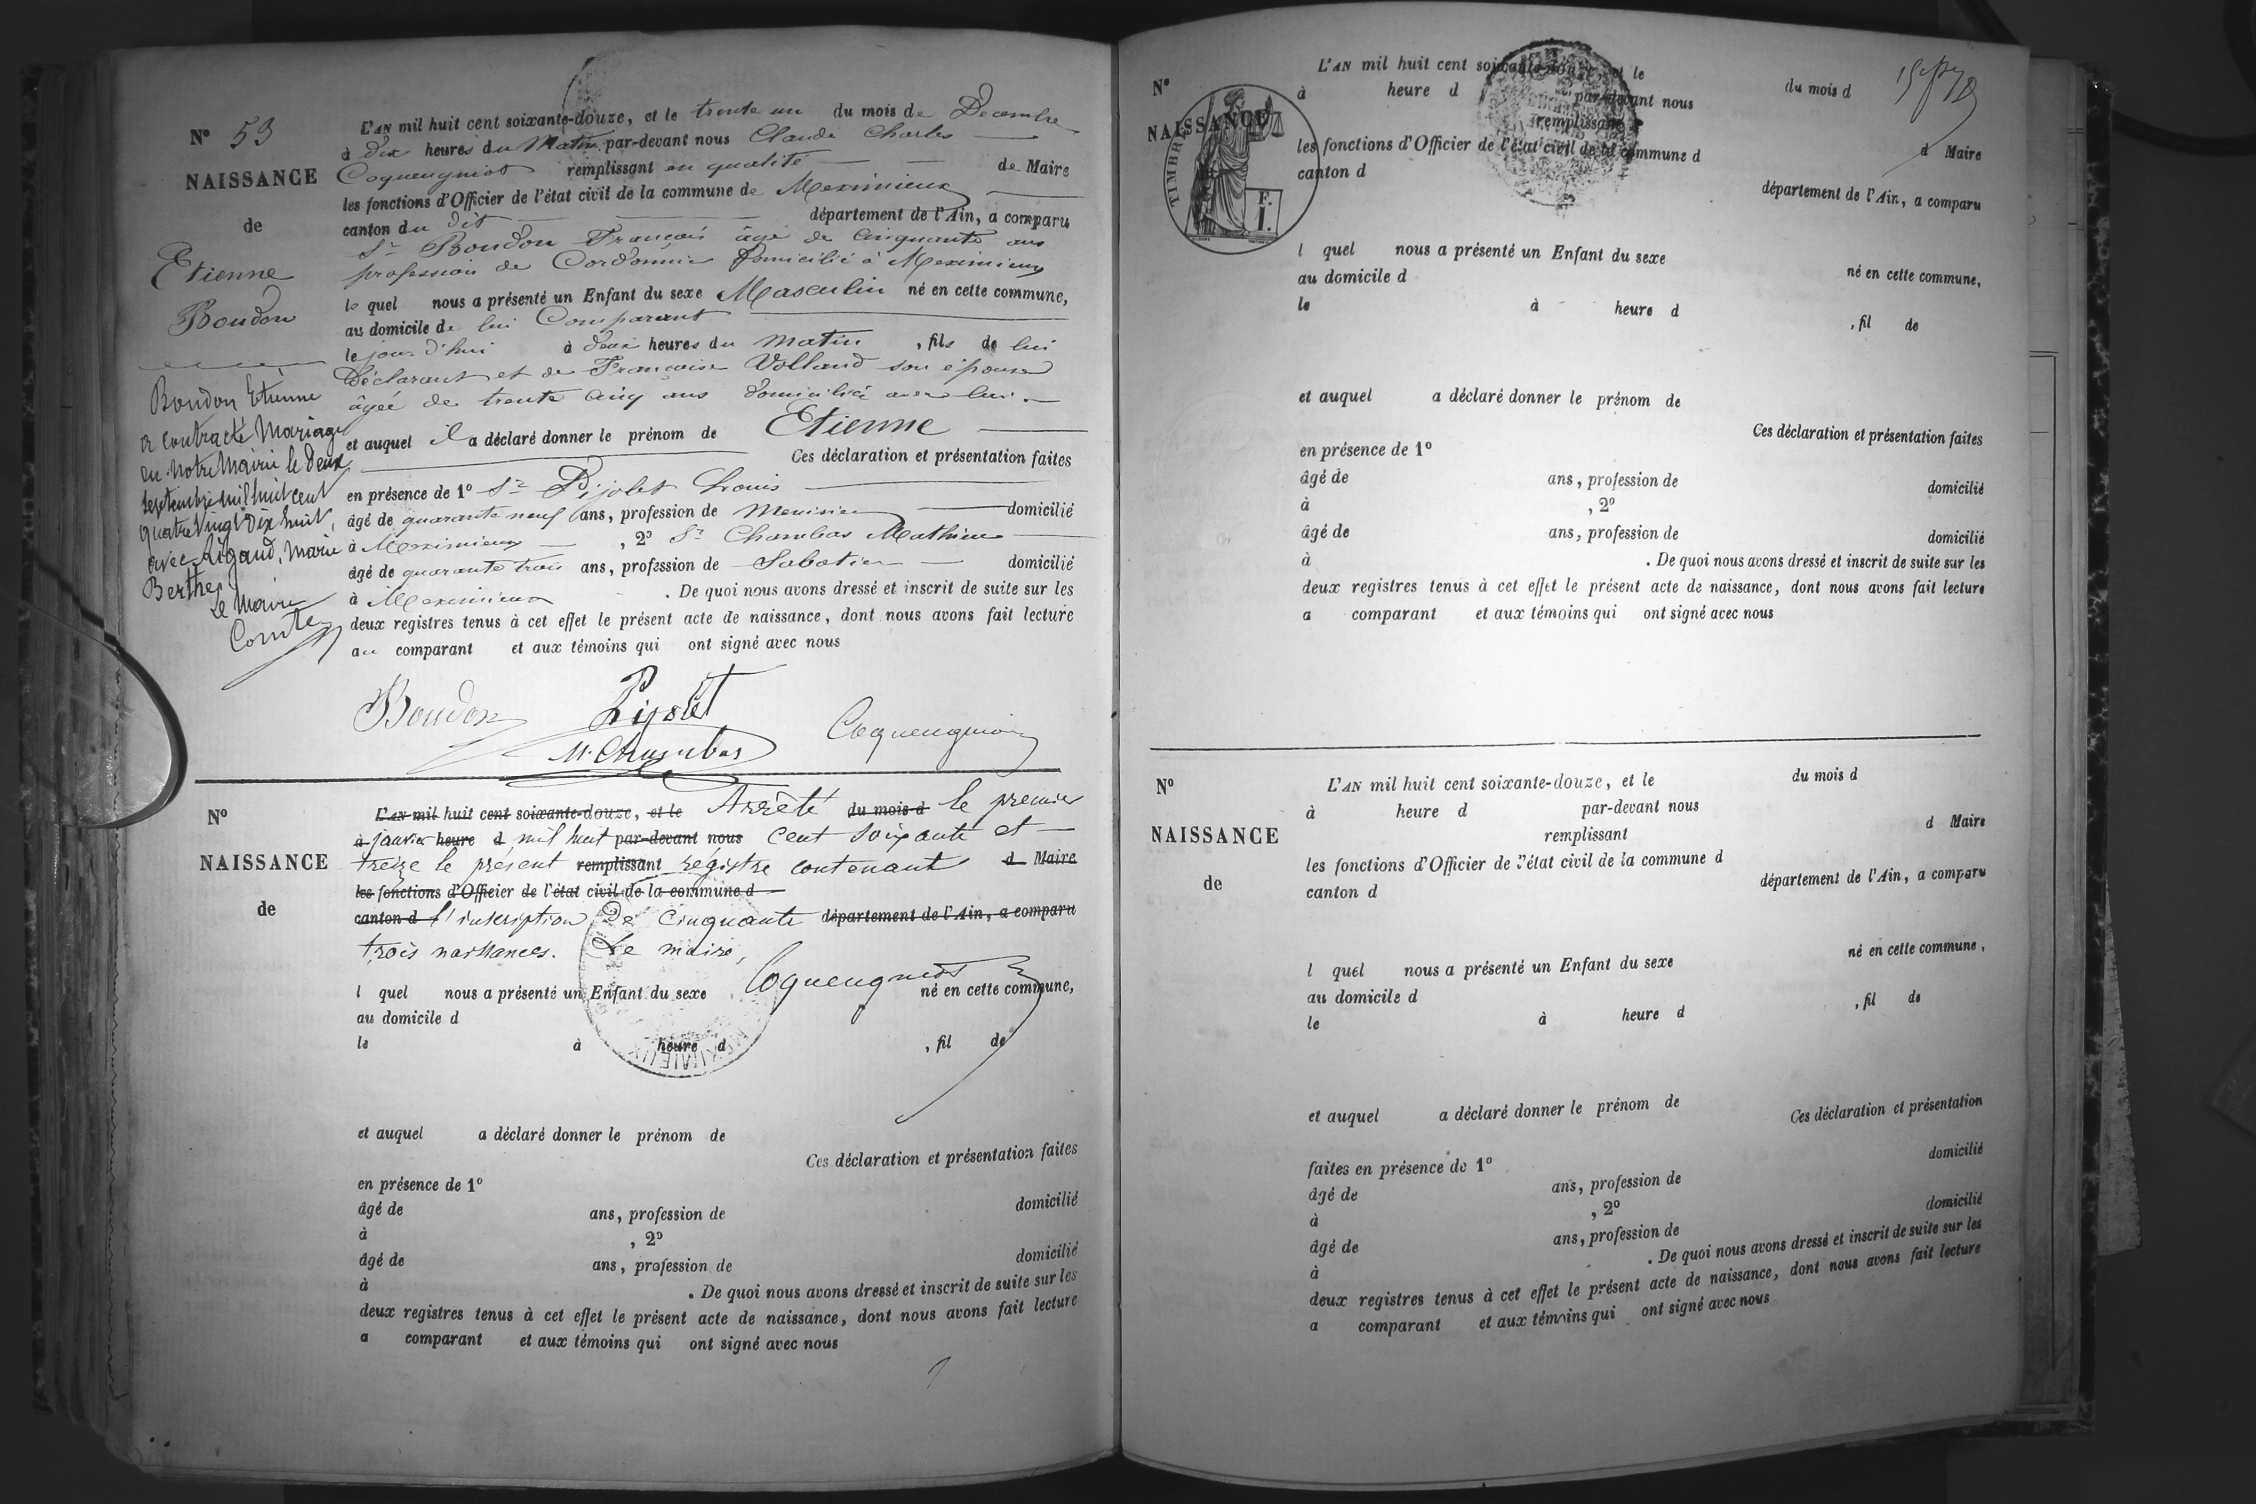 N° 53
NAISSANCE
de
Etienne
Boudon
L'AN mil huit cent soixante-douze, et le trente un du mois de Decembre
à dix heures du Matin par-devant nous Claude Charles
Coqueugniot remplissant en qualité de Maire
les fonctions d'Officier de l'état civil de la commune de Meximieux
canton du dit département de l'Ain, a comparu
Sr Boudon François âgé de cinquante ans
profession de Cordonnier domicilié à Meximieux
le quel nous a présenté un Enfant du sexe Masculin né en cette commune,
au domicile de lui Comparant
le jour d'hui à deux heures du matin, fils de lui
Déclarant et de Françoise Volland son épouse
âgée de trente cinq ans domiciliée avec lui.
et auquel il a déclaré donner le prénom de Etienne
Ces déclaration et présentation faites
en présence de 1° Sr Pijolet Louis
âgé de quarante neuf ans, profession de Menisier domicilié
à Meximieux, 2° Sr Chambas Mathieu
âgé de quarante trois ans, profession de Sabotier domicilié
à Meximieux. De quoi nous avons dressé et inscrit de suite sur les
deux registres tenus à cet effet le présent acte de naissance, dont nous avons fait lecture
au comparant et aux témoins qui ont signé avec nous
Boudon Etienne
a contracté Mariage
en notre Mairie le deux
septembre mil huit cent
quatre vingt dix huit,
avec Rigaud, Marie
Berthe
Le Maire
Comte
Boudon Pijolet
M. Chambas Coqueugniot
N°
NAISSANCE
de
L'AN mil huit cent soixante-douze, et le Arrêté du mois d le premier
à janvier heure d mil huit par-devant nous cent soixante et
treize le présent remplissant registre contenant d Maire
les fonctions d'Officier de l'état civil de la commune d
canton d l'inscription De Cinquante département de l'Ain, a comparu
trois naissances. Le maire,
Coqueugniot
l quel nous a présenté un Enfant du sexe né en cette commune,
au domicile d
le à heure d, fil de
MEXIMIEUX
et auquel a déclaré donner le prénom de
Ces déclaration et présentation faites
en présence de 1°
âgé de ans, profession de domicilié
à, 2°
âgé de ans, profession de domicilié
à. De quoi nous avons dressé et inscrit de suite sur les
deux registres tenus à cet effet le présent acte de naissance, dont nous avons fait lecture
a comparant et aux témoins qui ont signé avec nous
N°
NAISSANCE
TIMBRE
F.
1.
L'AN mil huit cent soixante-douze, et le du mois d
à heure d par-devant nous
remplissant
les fonctions d'Officier de l'état civil de la commune d d Maire
canton d département de l'Ain, a comparu
l quel nous a présenté un Enfant du sexe
au domicile d né en cette commune,
le à heure d, fil de
et auquel a déclaré donner le prénom de
Ces déclaration et présentation faites
en présence de 1°
âgé de ans, profession de domicilié
à, 2°
âgé de ans, profession de domicilié
à. De quoi nous avons dressé et inscrit de suite sur les
deux registres tenus à cet effet le présent acte de naissance, dont nous avons fait lecture
a comparant et aux témoins qui ont signé avec nous
N°
NAISSANCE
de
L'AN mil huit cent soixante-douze, et le du mois d
à heure d par-devant nous
remplissant d Maire
les fonctions d'Officier de l'état civil de la commune d
canton d département de l'Ain, a comparu
l quel nous a présenté un Enfant du sexe né en cette commune,
au domicile d
le à heure d, fil de
et auquel a déclaré donner le prénom de
Ces déclaration et présentation
faites en présence de 1° domicilié
âgé de ans, profession de
à, 2° domicilié
âgé de ans, profession de
à. De quoi nous avons dressé et inscrit de suite sur les
deux registres tenus à cet effet le présent acte de naissance, dont nous avons fait lecture
a comparant et aux témoins qui ont signé avec nous